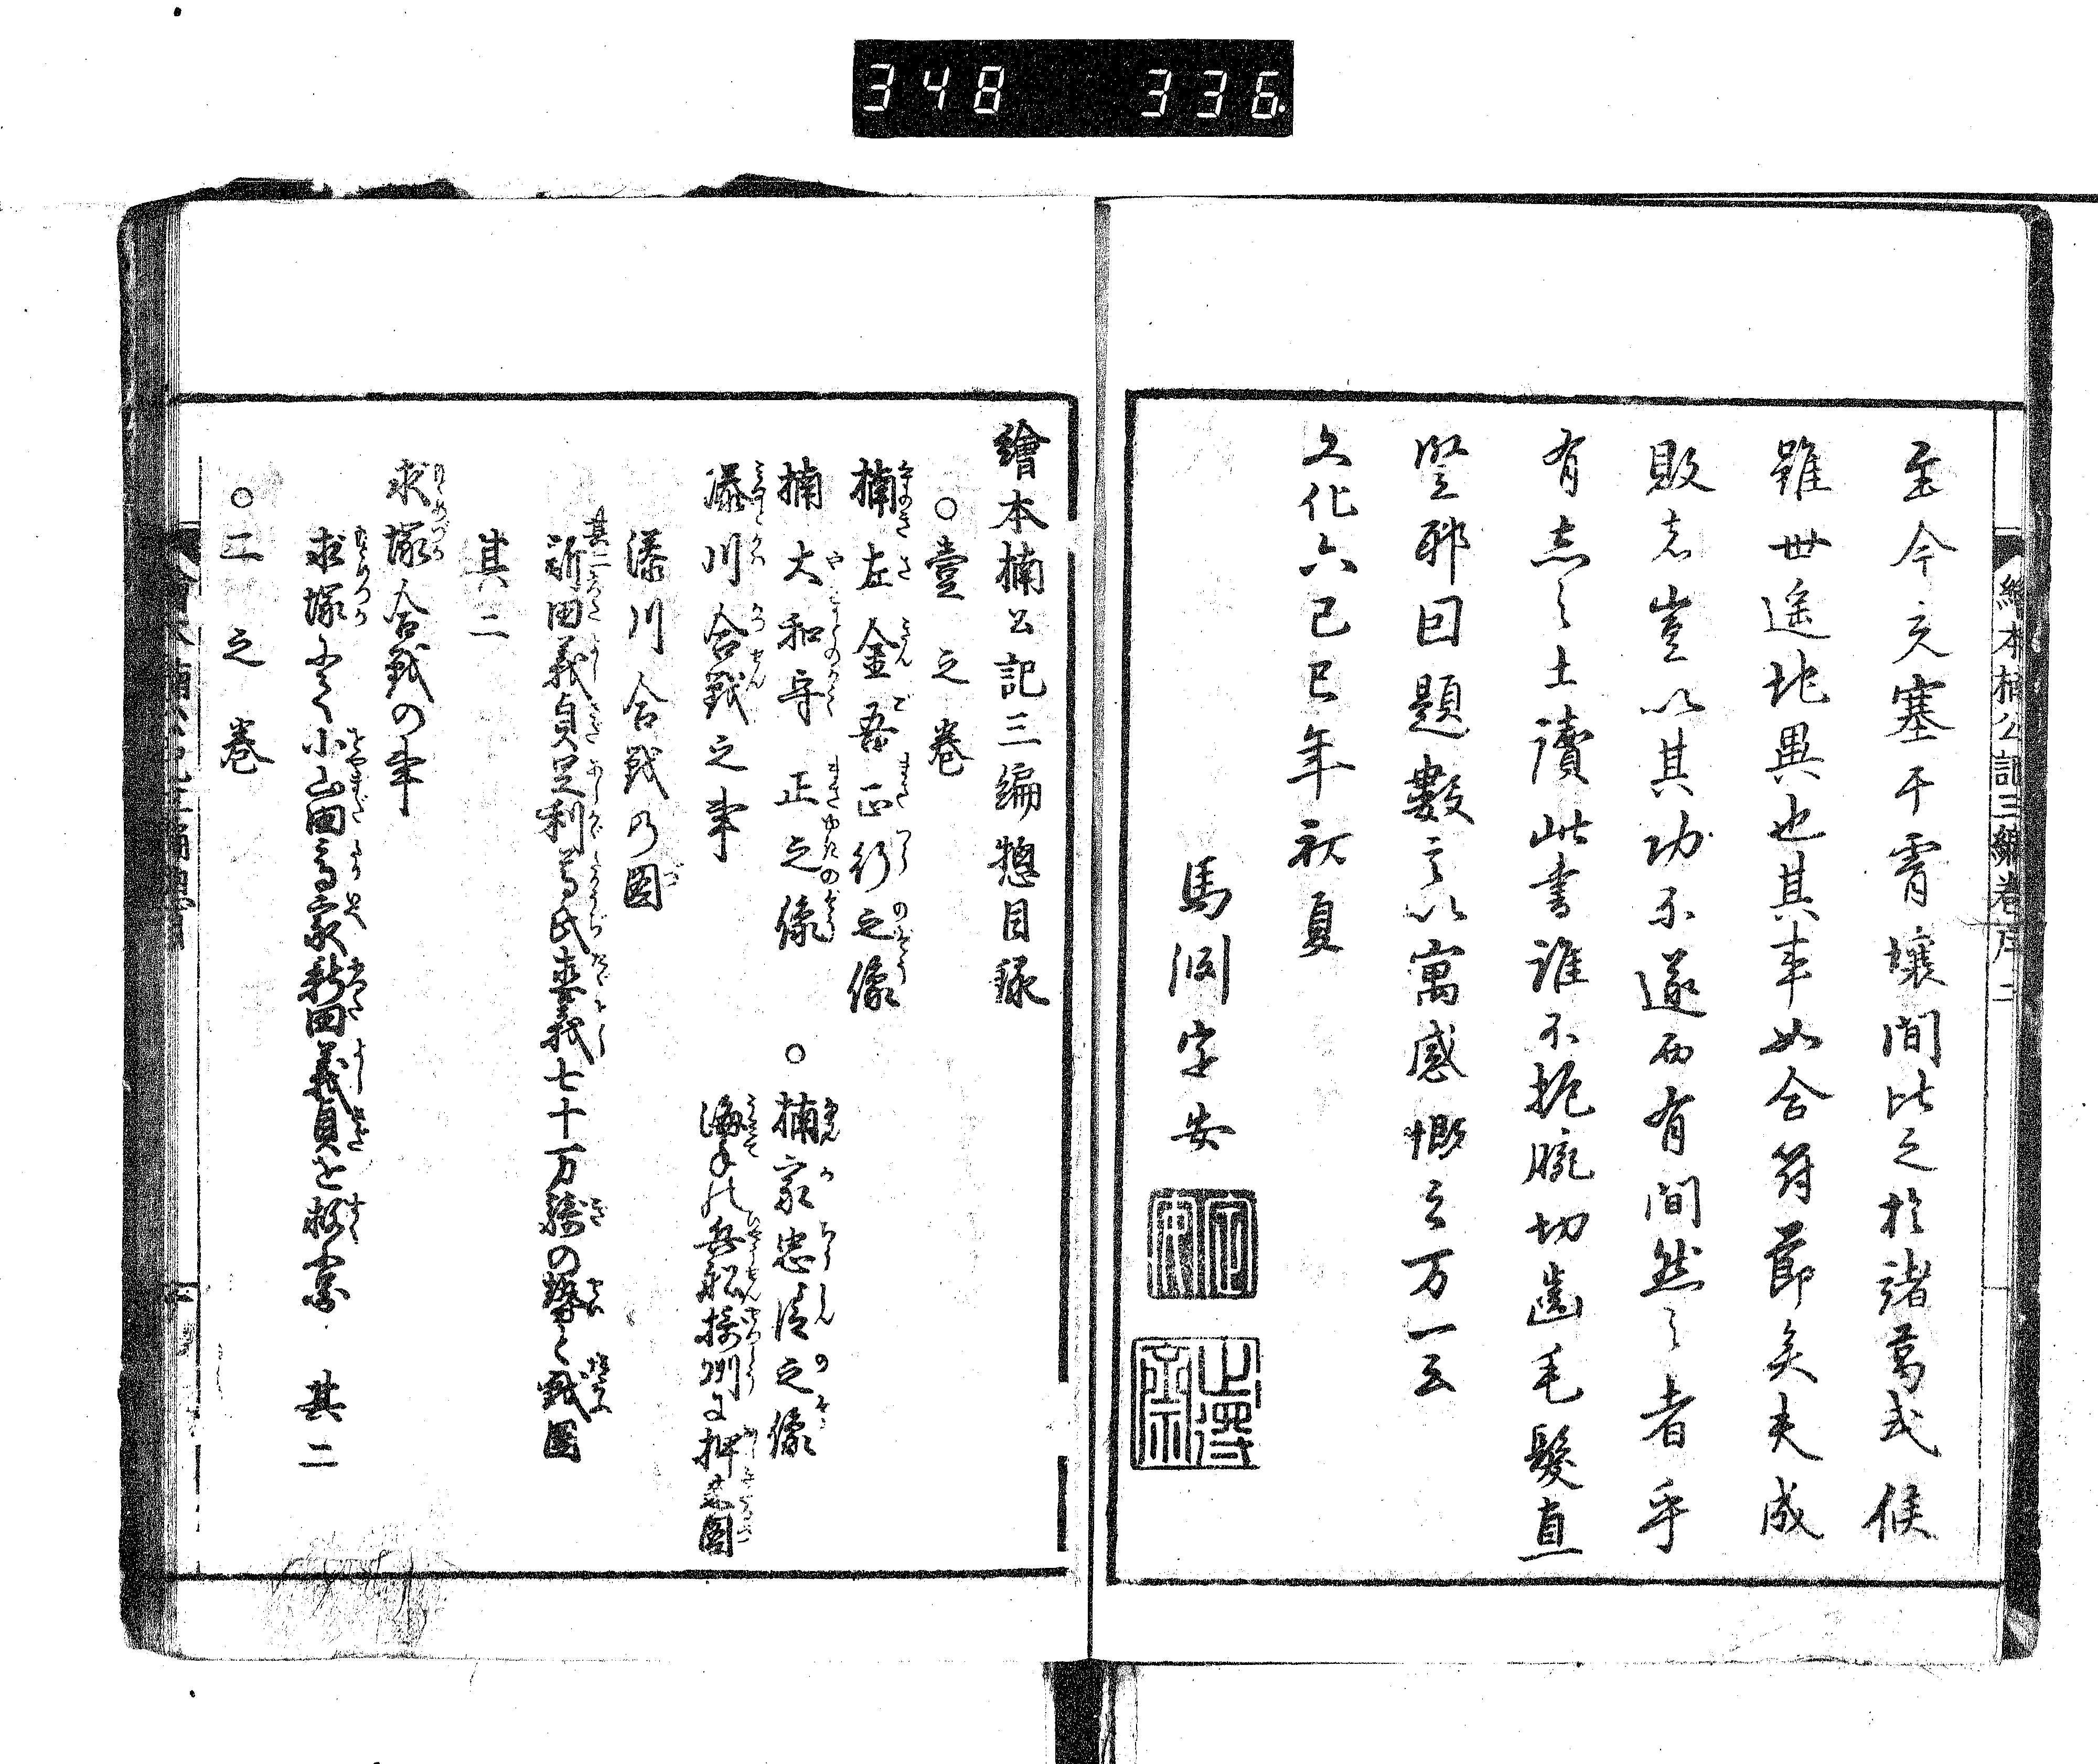 348 336
繪本楠公記三編卷序 二
至今充塞于霄壤間比之於諸葛武侯
雖世遥地異也其事如合符節矣夫成
敗者豈以其功不遂而有間然之者乎
有志之士讀此書誰不扼腕切齒毛髮直
豎耶因題數言以寓感慨之万一云
文化六己巳年初夏
馬渕字安
繪本楠公記三編惣目録
○壹之卷
楠左金吾正行之像
楠大和守正之像 ○楠家忠臣之像
湊川合戰之事 海手の兵船摂州に押来圖
湊川合戰乃圖
其二 新田義貞足利尊氏直義七十万騎の勢と戰圖
其二
求塚合戰の事
求塚にて小山田高家新田義貞を救ふ 其二
○二之卷